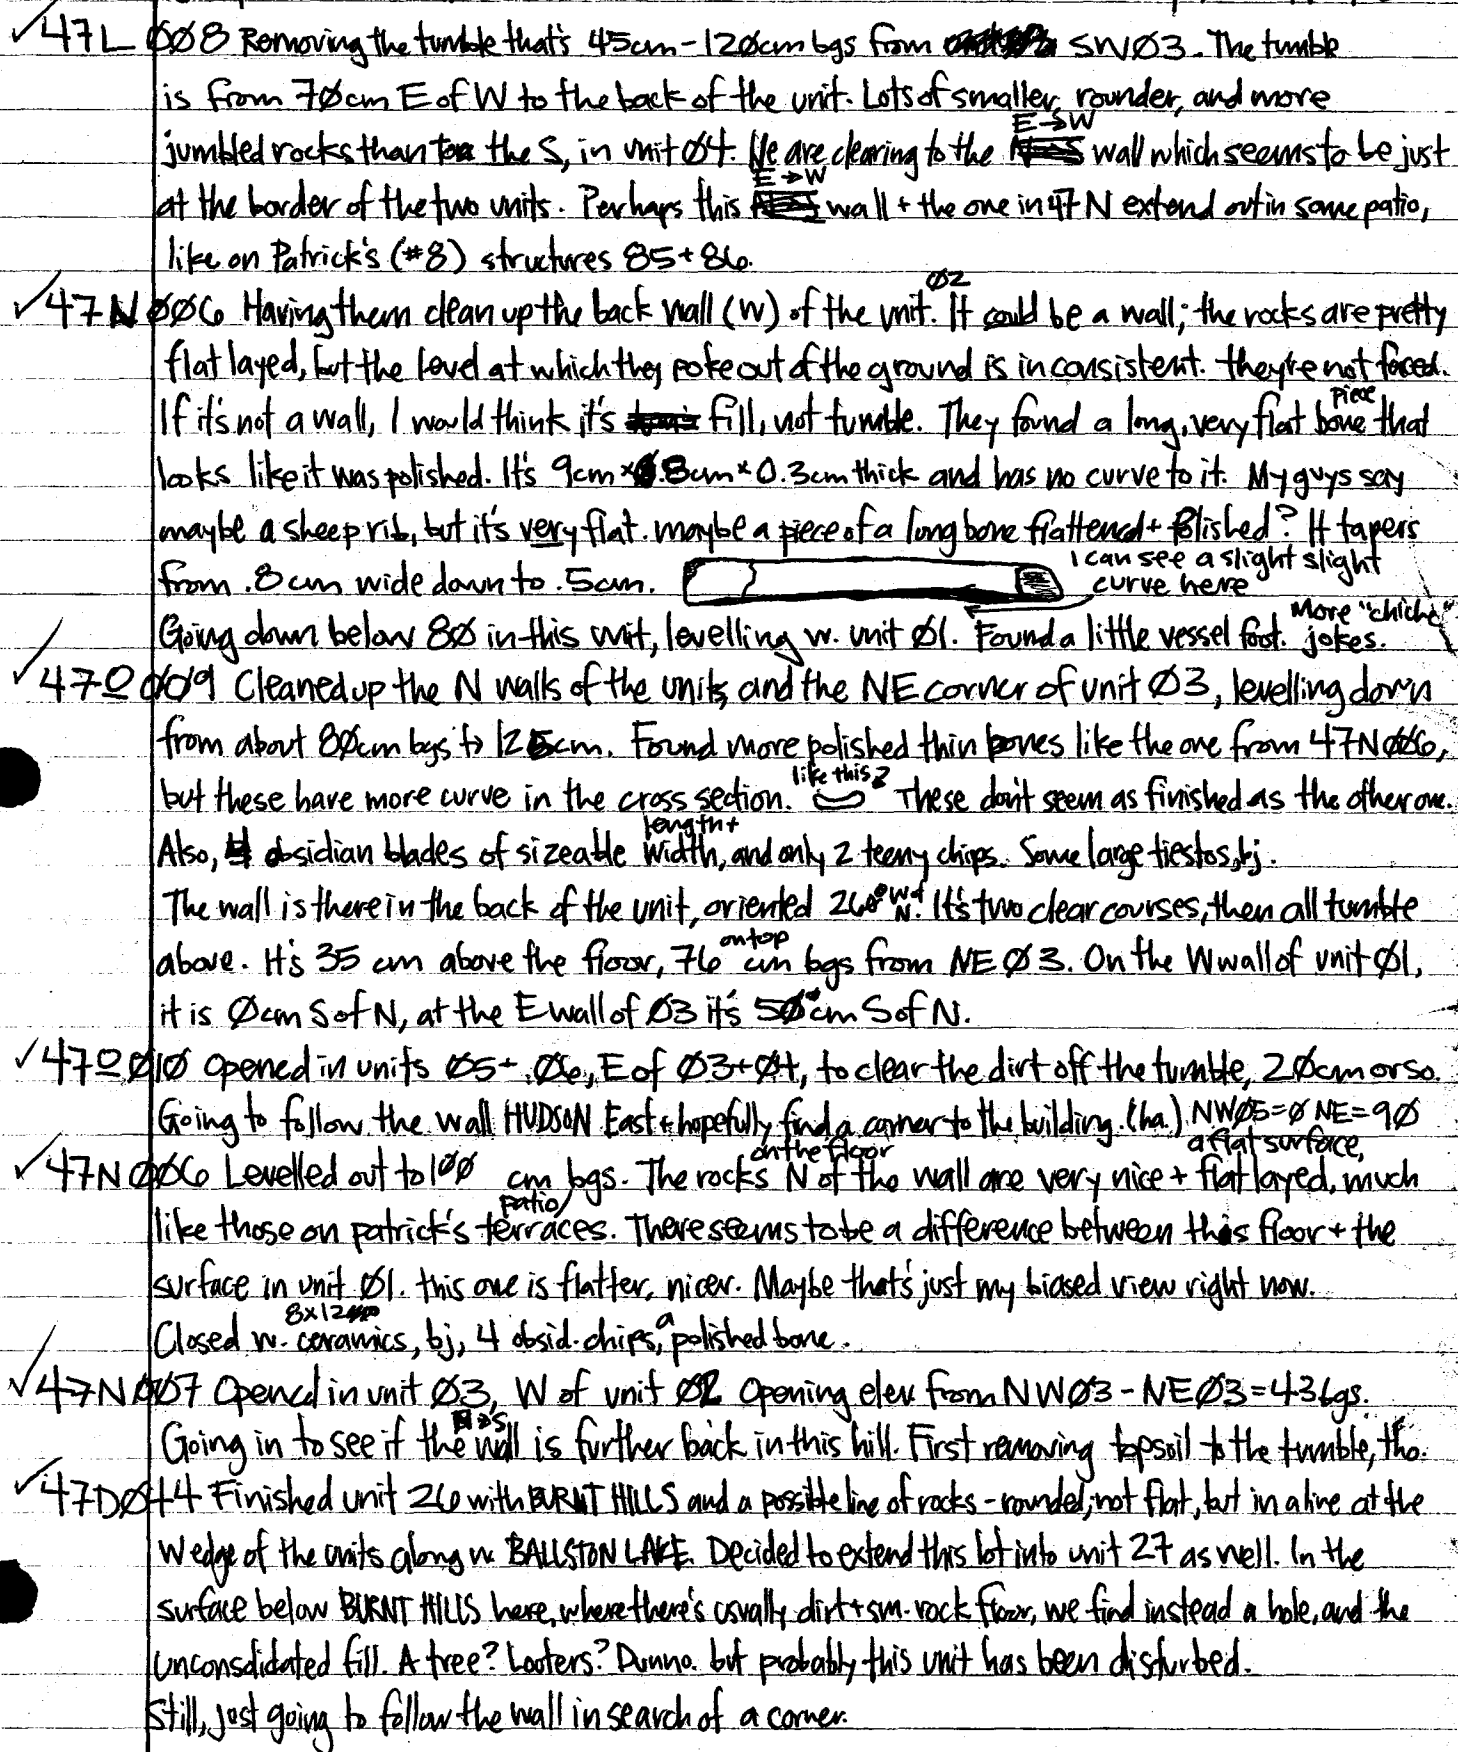 ✓47L 008 Removing the tumble that's 45cm-120cm bgs from SWØ3. The tumble
is from 7Øcm E of W to the back of the unit. Lots of smaller, rounder, and more
E→W
jumbled rocks than to the S, in unit Ø4. We are clearing to the wall which seems to be just
E→W
at the border of the two units. Perhaps this wall + the one in 47N extend out in some patio,
like on Patrick's (#8) structures 85+86.
Ø2
✓47N ØØ6 Having them clean up the back wall (W) of the unit. It could be a wall; the rocks are pretty
flat layed, but the level at which they poke out of the ground is inconsistent. they're not faced.
piece
If it's not a wall, I would think it's fill, not tumble. They found a long, very flat bone that
looks like it was polished. It's 9cm × .8cm × 0.3cm thick and has no curve to it. My guys say
maybe a sheep rib, but it's very flat. maybe a piece of a long bone flattened + polished? It tapers
from .8cm wide down to .5cm. I can see a slight slight
curve here
Going down below 8Ø in this unit, levelling w. unit Ø1. Found a little vessel foot. More "chiche"
jokes.
✓47O ØØ9 Cleaned up the N walls of the units and the NE corner of unit Ø3, levelling down
from about 8Øcm bgs to 125cm. Found more polished thin bones like the one from 47NØØ6,
like this?
but these have more curve in the cross section. These don't seem as finished as the other one.
length+
Also, obsidian blades of sizeable width, and only 2 teeny chips. Some large tiestos, bj.
The wall is there in the back of the unit, oriented 268° W of N. It's two clear courses, then all tumble
on top
above. It's 35 cm above the floor, 76 cm bgs from NE Ø3. On the W wall of unit Ø1,
it is Øcm S of N, at the E wall of Ø3 it's 5Øcm S of N.
✓47O Ø1Ø Opened in units Ø5+ Ø6, E of Ø3+Ø4, to clear the dirt off the tumble, 2Øcm or so.
Going to follow the wall HUDSON East + hopefully find a corner to the building. (ha.) NWØ5=Ø NE=9Ø
on the floor a flat surface,
✓47N ØØ6 Levelled out to 1ØØ cm bgs. The rocks N of the wall are very nice + flat layed, much
patio/
like those on patrick's terraces. There seems to be a difference between this floor + the
surface in unit Ø1. this one is flatter, nicer. Maybe that's just my biased view right now.
8x12
Closed w. ceramics, bj, 4 obsid. chips, a polished bone.
✓47N ØØ7 Opened in unit Ø3, W of unit Ø2 Opening elev from NWØ3 - NEØ3 = 43bgs.
N→S
Going in to see if the wall is further back in this hill. First removing topsoil to the tumble, tho.
✓47DØ44 Finished unit 26 with BURNT HILLS and a possible line of rocks - rounded, not flat, but in a line at the
W edge of the units along w. BALLSTON LAKE. Decided to extend this lot into unit 27 as well. In the
surface below BURNT HILLS here, where there's usually dirt + sm. rock floor, we find instead a hole, and the
unconsolidated fill. A tree? Looters? Dunno. but probably this unit has been disturbed.
Still, just going to follow the wall in search of a corner.